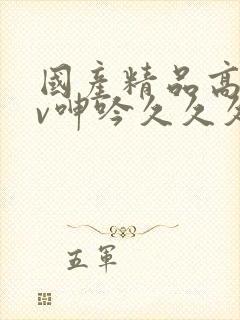 國產精品高
v呻吟久久久
五軍